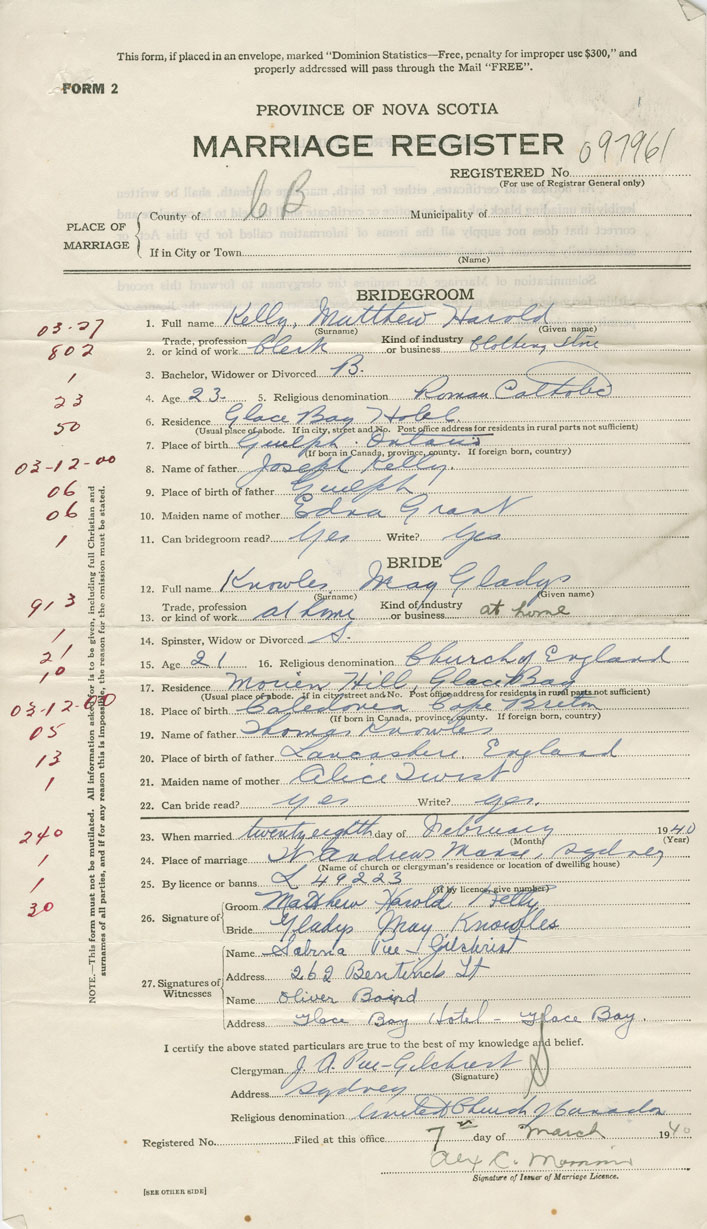 This form, if placed in an envelope, marked "Dominion Statistics—Free, penalty for improper use $300," and
properly addressed will pass through the Mail "FREE".
FORM 2
PROVINCE OF NOVA SCOTIA
MARRIAGE REGISTER 097961
REGISTERED No.
(For use of Registrar General only)
PLACE OF MARRIAGE
County of C B Municipality of
If in City or Town
(Name)
BRIDEGROOM
03-27 1. Full name Kelly, Matthew Harold
(Surname) (Given name)
802 2. Trade, profession or kind of work Clerk Kind of industry or business Clothing Store
1 3. Bachelor, Widower or Divorced B.
23 4. Age 23 5. Religious denomination Roman Catholic
50 6. Residence Glace Bay Hotel
(Usual place of abode. If in city, street and No. Post office address for residents in rural parts not sufficient)
03-12-00 7. Place of birth Guelph Ontario
(If born in Canada, province, county. If foreign born, country)
8. Name of father Joseph Kelly.
06 9. Place of birth of father Guelph
06 10. Maiden name of mother Edna Grant
1 11. Can bridegroom read? Yes Write? Yes
BRIDE
12. Full name Knowles May Gladys
(Surname) (Given name)
913 13. Trade, profession or kind of work at home Kind of industry or business at home
1 14. Spinster, Widow or Divorced S.
21 15. Age 21 16. Religious denomination Church of England
10 17. Residence Morien Hill, Glace Bay
(Usual place of abode. If in city street and No. Post office address for residents in rural parts not sufficient)
03-12-00 18. Place of birth Caledonia Cape Breton
(If born in Canada, province, county. If foreign born, country)
05 19. Name of father Thomas Knowles
13 20. Place of birth of father Lancashire, England
1 21. Maiden name of mother Alice Twist
22. Can bride read? yes Write? yes.
240 23. When married twenty eighth day of February 1940
(Month) (Year)
1 24. Place of marriage St Andrews Manse, Sydney
(Name of church or clergyman's residence or location of dwelling house)
1 25. By licence or banns L 49223
(If by licence, give number)
30 26. Signature of
Groom Matthew Harold Kelly
Bride Gladys May Knowles
27. Signatures of Witnesses
Name Pue-Gilchrist
Address 262 Bentinck St
Name Oliver Baird
Address Glace Bay Hotel - Glace Bay.
I certify the above stated particulars are true to the best of my knowledge and belief.
Clergyman J. A. Pue-Gilchrist
(Signature)
Address Sydney
Religious denomination United Church of Canada
Registered No. Filed at this office 7th day of March 1940
Alex C.
Signature of Issuer of Marriage Licence.
[SEE OTHER SIDE]
NOTE.—This form must not be mutilated. All information asked for is to be given, including full Christian and
surnames of all parties, and if for any reason this is impossible, the reason for the omission must be stated.